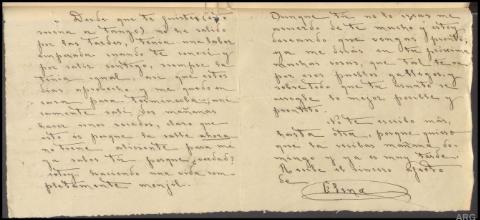 Desde que te fuistes (co-
mina a Tongo) no he salido
por las tardes, tenia una labor
empezada cuando te conocí y
por salir contigo, siempre la
tenia igual, así que estos
dias aprovecho y me quedo en
casa para terminarla, uni-
camente salí dos mañanas
hacer unos recados, claro que
esto es porque la calle ahora
no tiene aliciente para mi
ya sabes tú porque ¿verdad?
estoy haciendo una vida com-
pletamente monjil.
Aunque tú no lo creas me
acuerdo de tí mucho y estoy
deseando que vengas pronto,
ya me dirás en tu próxima
muchas cosas, que tal te va
por esos pueblos gallegos, y
sobre todo que tu asunto se
arregle lo mejor posible y
prontito.
No te escribo más,
hasta otra, porque quiero
que la recibas mañana do-
mingo y ya es muy tarde.
Recibe el sincero afecto
de
Elena
ARG